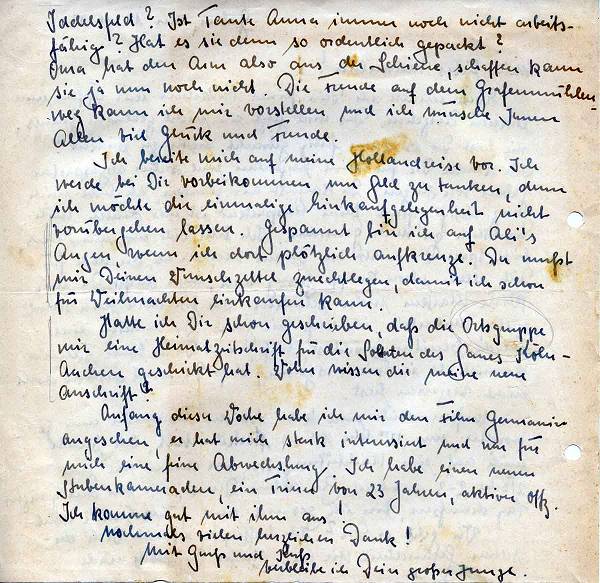 Ist Tante Anna immer noch nicht arbeits-
fähig? Hat es sie denn so ordentlich gepackt?
Oma hat den Arm also aus der Schiene, schaffen kann
sie ja nun noch nicht. Die Freude auf dem Grafenmühlen-
weg kann ich mir vorstellen und ich wünsche Ihnen
Allen viel Glück und Freude.
Ich bereite mich auf meine Hollandreise vor. Ich
werde bei Dir vorbeikommen um Geld zu tanken, denn
ich möchte die einmalige Einkaufgelegenheit nicht
vorübergehen lassen. Gespannt bin ich auf Ali's
Augen, wenn ich dort plötzlich aufkreuze. Du mußt
mir Deinen Wunschzettel zurechtlegen, damit ich schon
für Weihnachten einkaufen kann.
Hatte ich Dir schon geschrieben, daß die Ortsgruppe
mir eine Heimatzeitschrift für die Soldaten des Gaues Köln-
Aachen geschickt hat. Woher wissen die meine neue
Anschrift?
Anfang dieser Woche habe ich mir den Film Germanin
angesehen, er hat mich stark interessiert und war für
mich eine feine Abwechslung. Ich habe einen neuen
Stubenkameraden, ein von 23 Jahren, aktiver Offz.
Ich komme gut mit ihm aus!
Nochmals vielen herzlichen Dank!
Mit Gruß und Kuß
verbleibe ich Dein großer Junge.